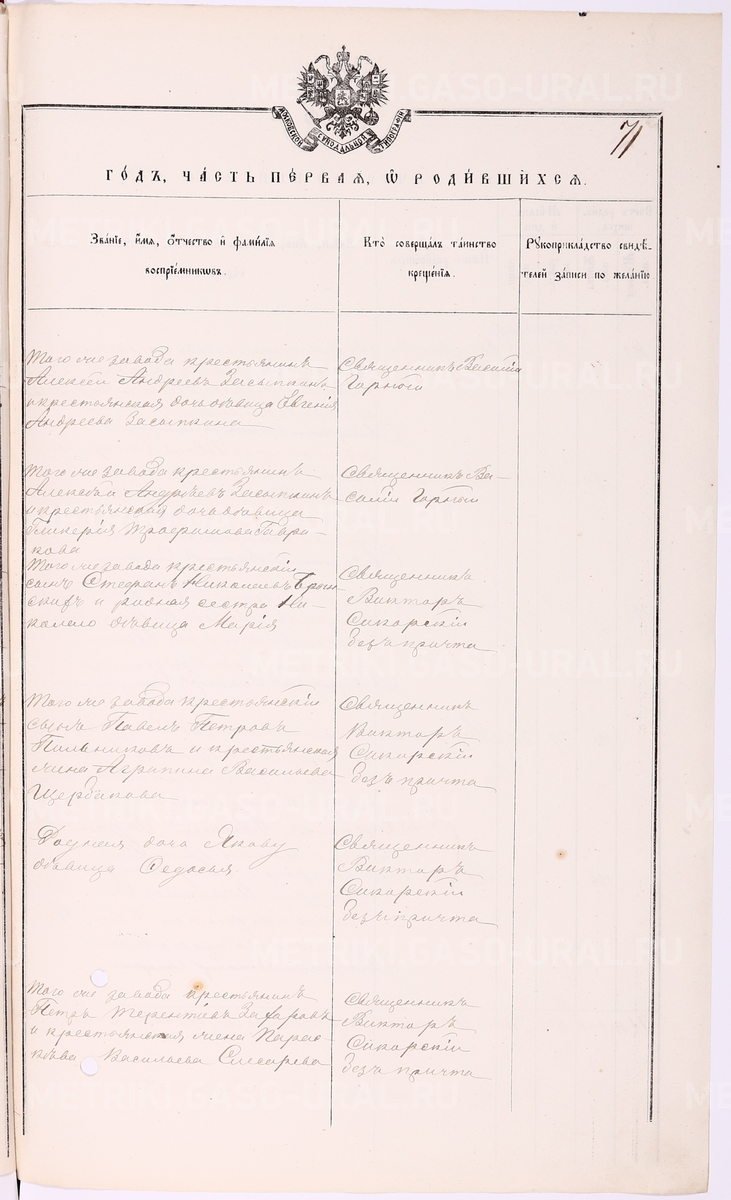 МОСКОВСКОЙ СѴНОДАЛЬНОЙ ТИПОГРАФІИ
71
ГО́ДЪ, ЧА́СТЬ ПЕ́РВАЯ, Ѡ҆ РОДИ́ВШИХСЯ.
Зва́нїе, и҆́мя, ѻ҆́тчество и҆ фами́лїя
воспрїе́мникѡвъ.
Кто̀ соверша́лъ та́инство
креще́нїя.
Рꙋкоприкла́дство свидѣ́-
телей за́писи по жела́нїю
Того же завода крестьянинъ
Алексѣй Андреевъ Засыпкинъ
и крестьянская дочь дѣвица Евгенія
Андреева Засыпкина
Священникъ Василій
Горный
Того же завода крестьянинъ
Алексѣй Андреевъ Засыпкинъ
и крестьянская дочь дѣвица
Гликерія Трофимова Гаври-
кова
Священникъ Ва-
силій Горный
Того же завода крестьянскій
сынъ Стефанъ Николаевъ
и родная сестра Ни-
колаю дѣвица Марія
Священникъ
Викторъ
Сикорскій
безъ причта
Того же завода крестьянскій
сынъ Павелъ Петровъ
Пильниковъ и крестьянская
жена Агрипина Васильева
Щербакова
Священникъ
Викторъ
Сикорскій
безъ причта
Родная дочь Якову
дѣвица Федосья.
Священникъ
Викторъ
Сикорскій
безъ причта
Того же завода крестьянинъ
Петръ Терентьевъ Захаровъ
и крестьянская жена Парас-
кева Васильева Слесарева
Священникъ
Викторъ
Сикорскій
безъ причта
METRIKI.GASO-URAL.RU